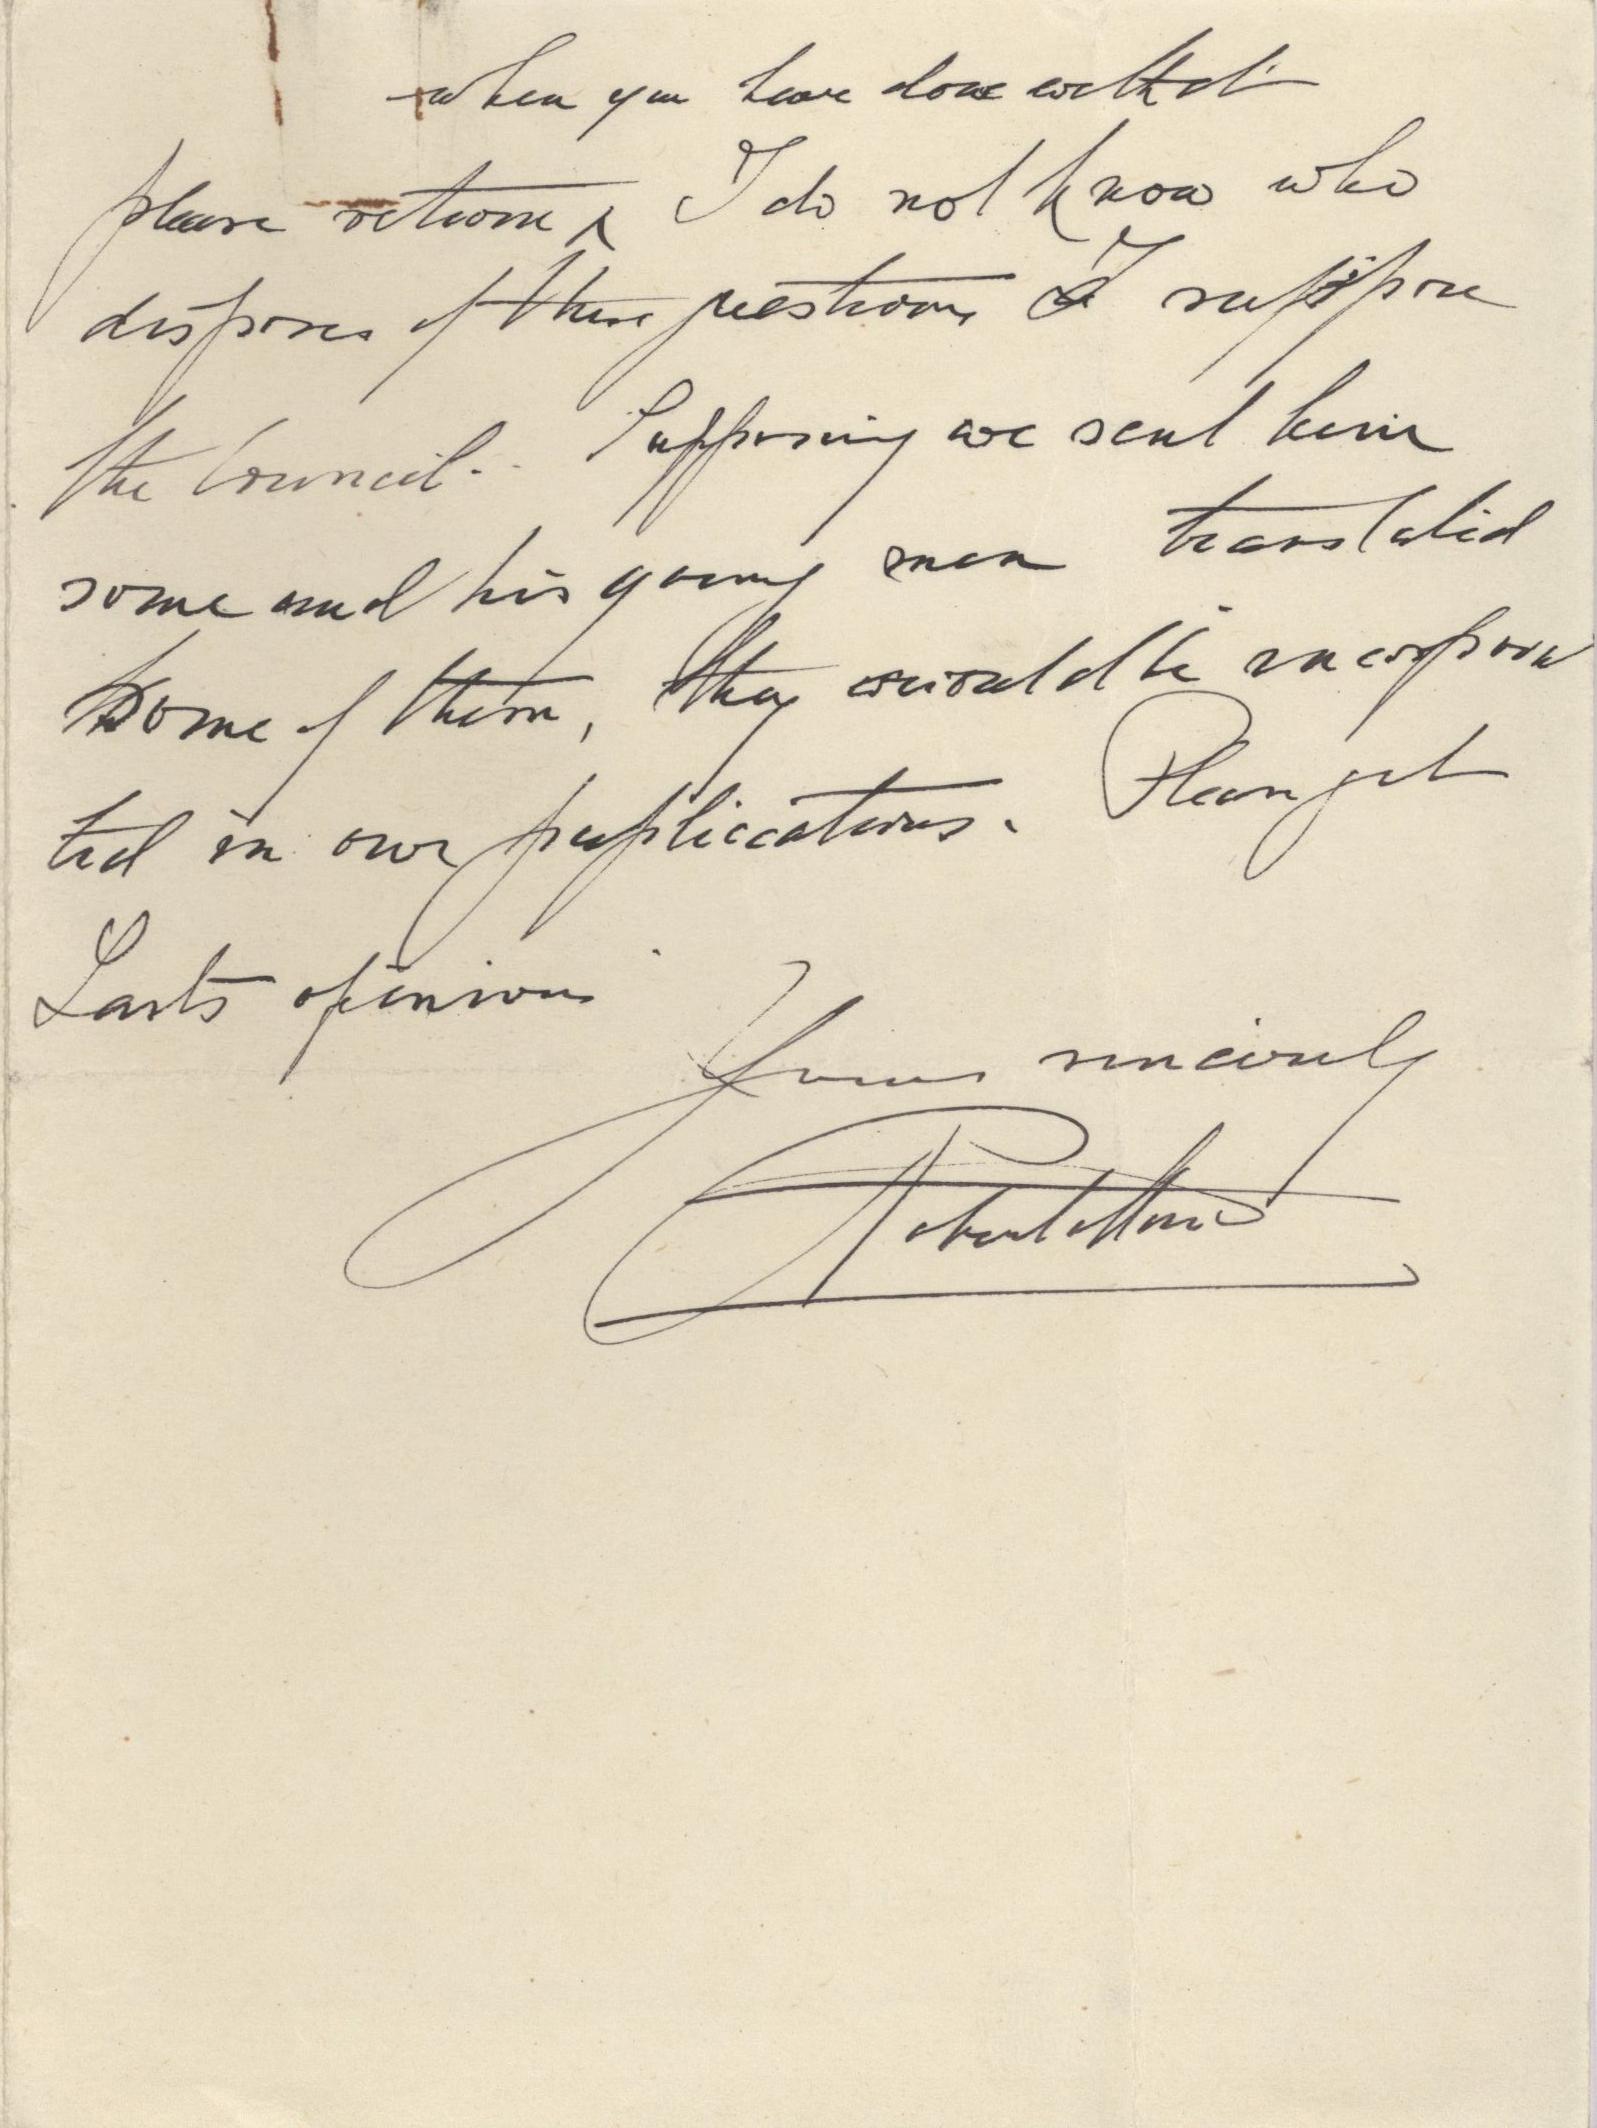 when you have done with it
please return ‸ I do not know who
disposes of these questions I suppose
the Council. Supposing we sent him
some and his young men translated
some of them, they would be incorpora
ted in our publications. Please get
Lart's opinion
Yours sincerely
Robert